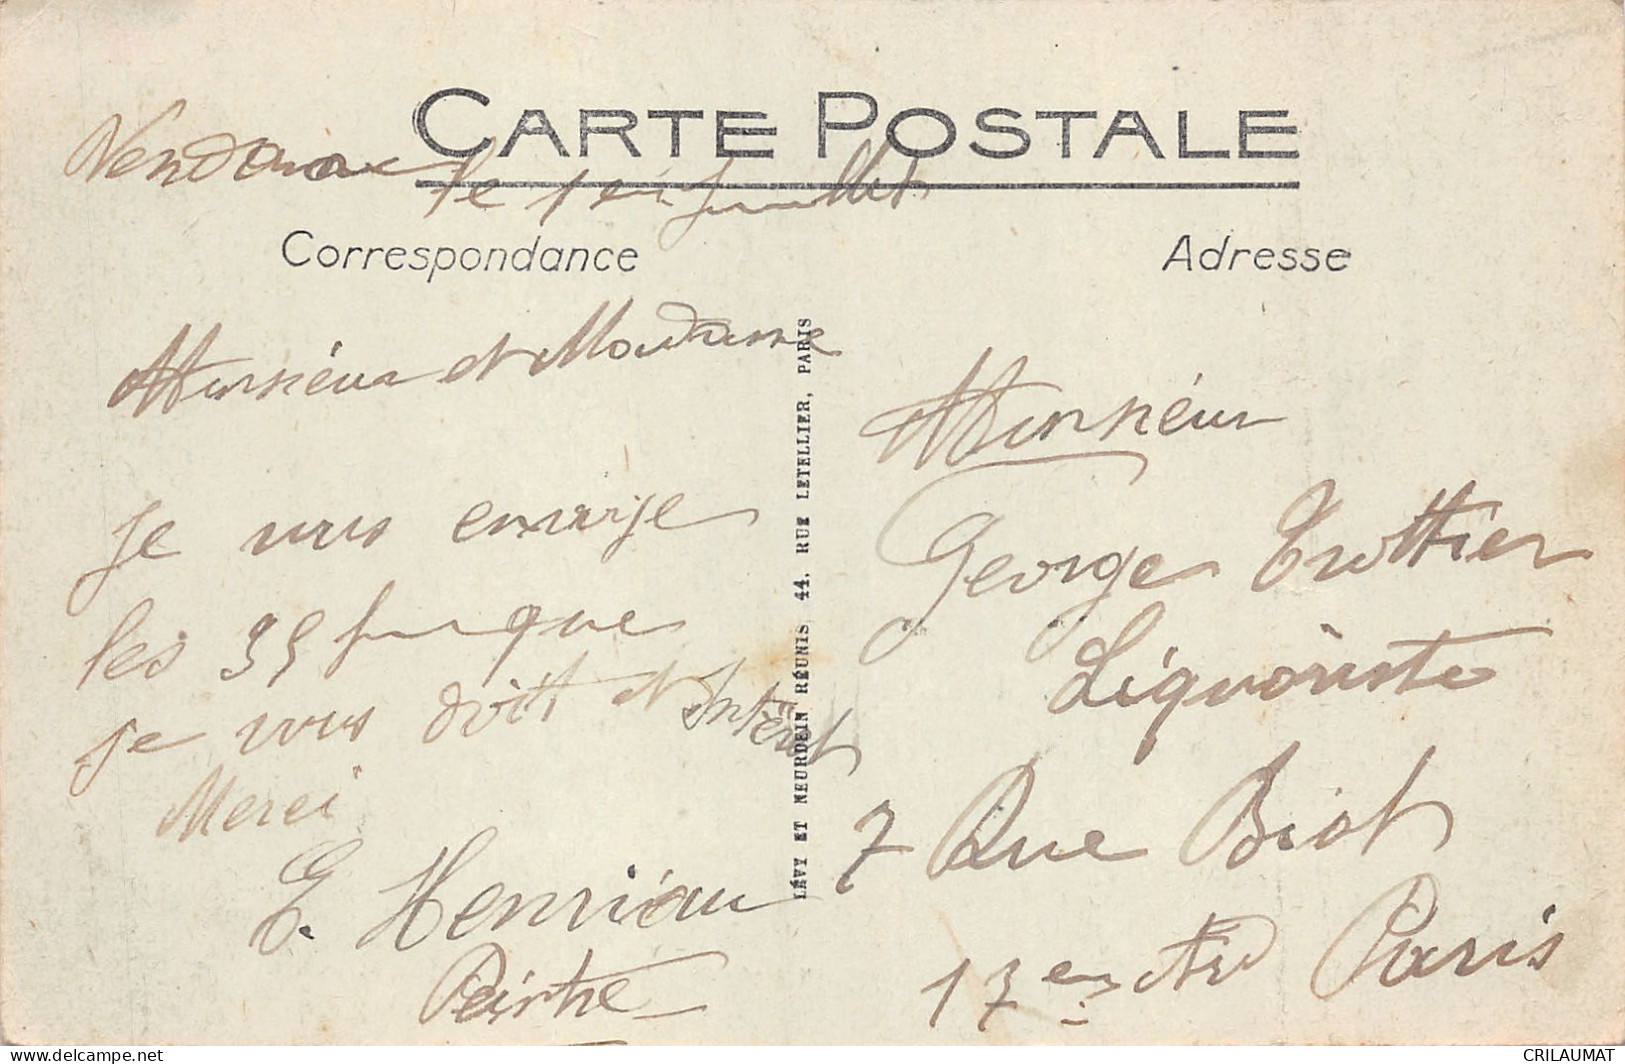 CARTE POSTALE
le 1er juillet
Correspondance
Adresse
Monsiéur et Madame
Je vous envoye
les 35 f que
je vous doit et Intérêt
Merci
E. Henriau
Peintre
LÉVY ET NEURDEIN RÉUNIS 44, RUE LETELLIER, PARIS
Monsiéur
George Trottier
Liquoriste
7 Rue Biot
17em Ard Paris
CRILAUMAT